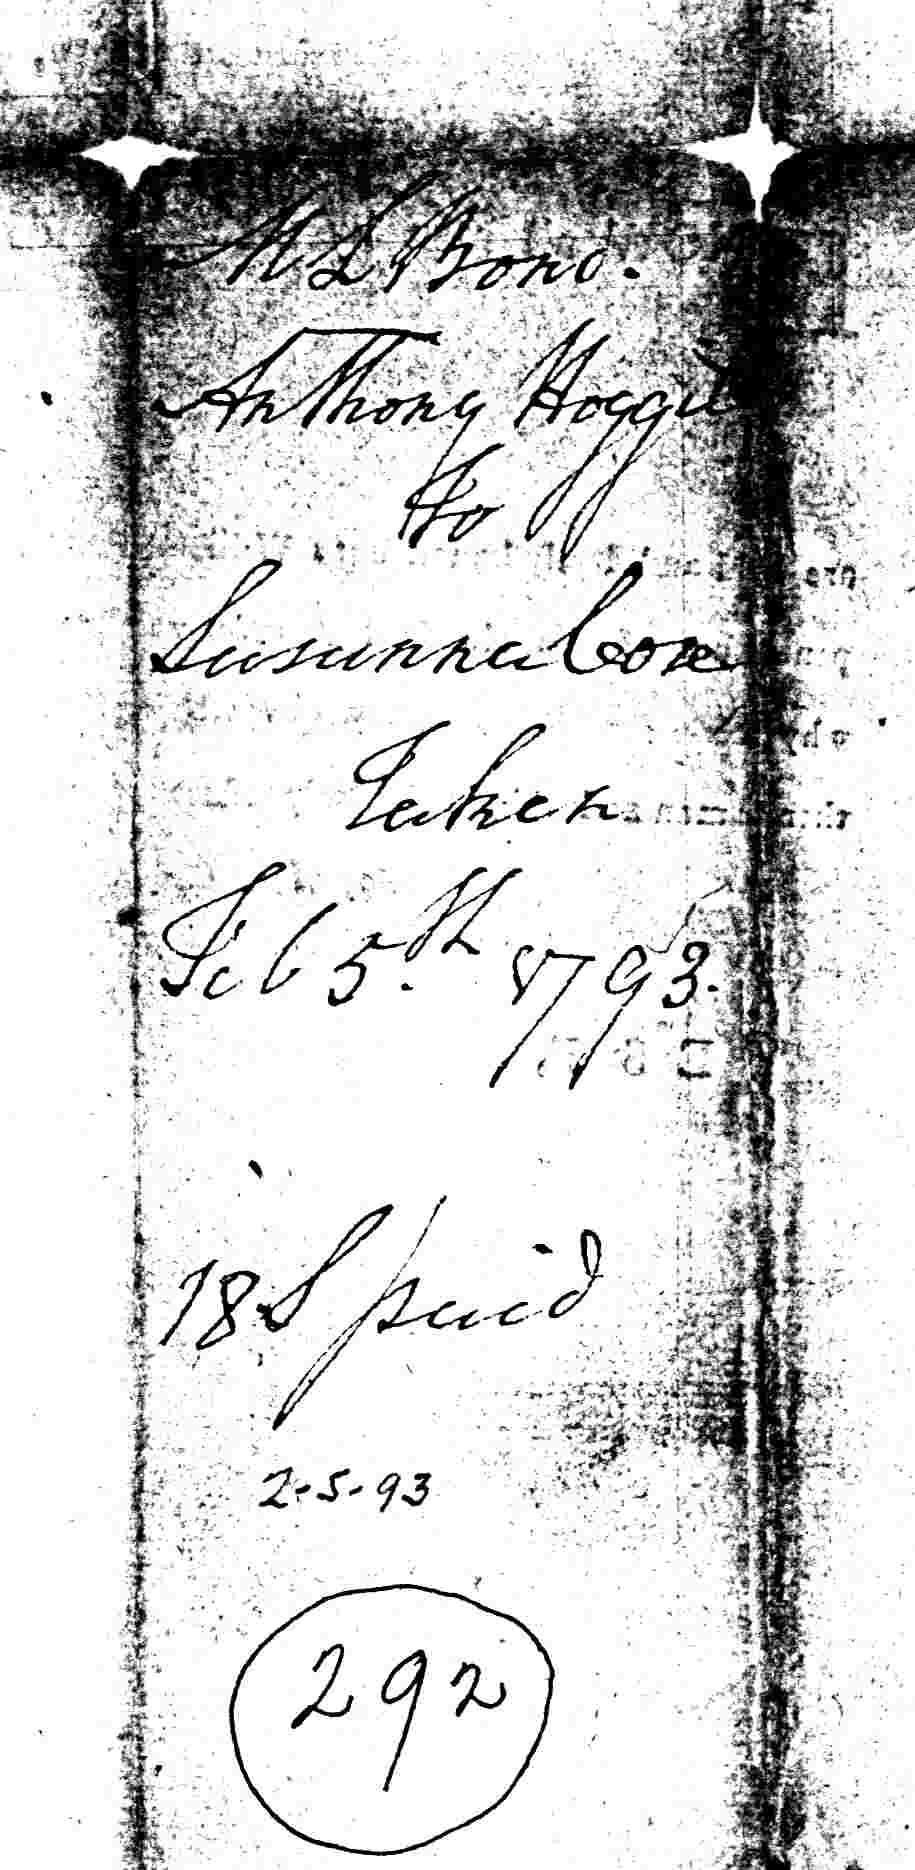 M L Bond.
Anthony Hoggit
to
Susanna Cose
Taken
Feb 5.th 1793.
18 S paid
2-5-93
292